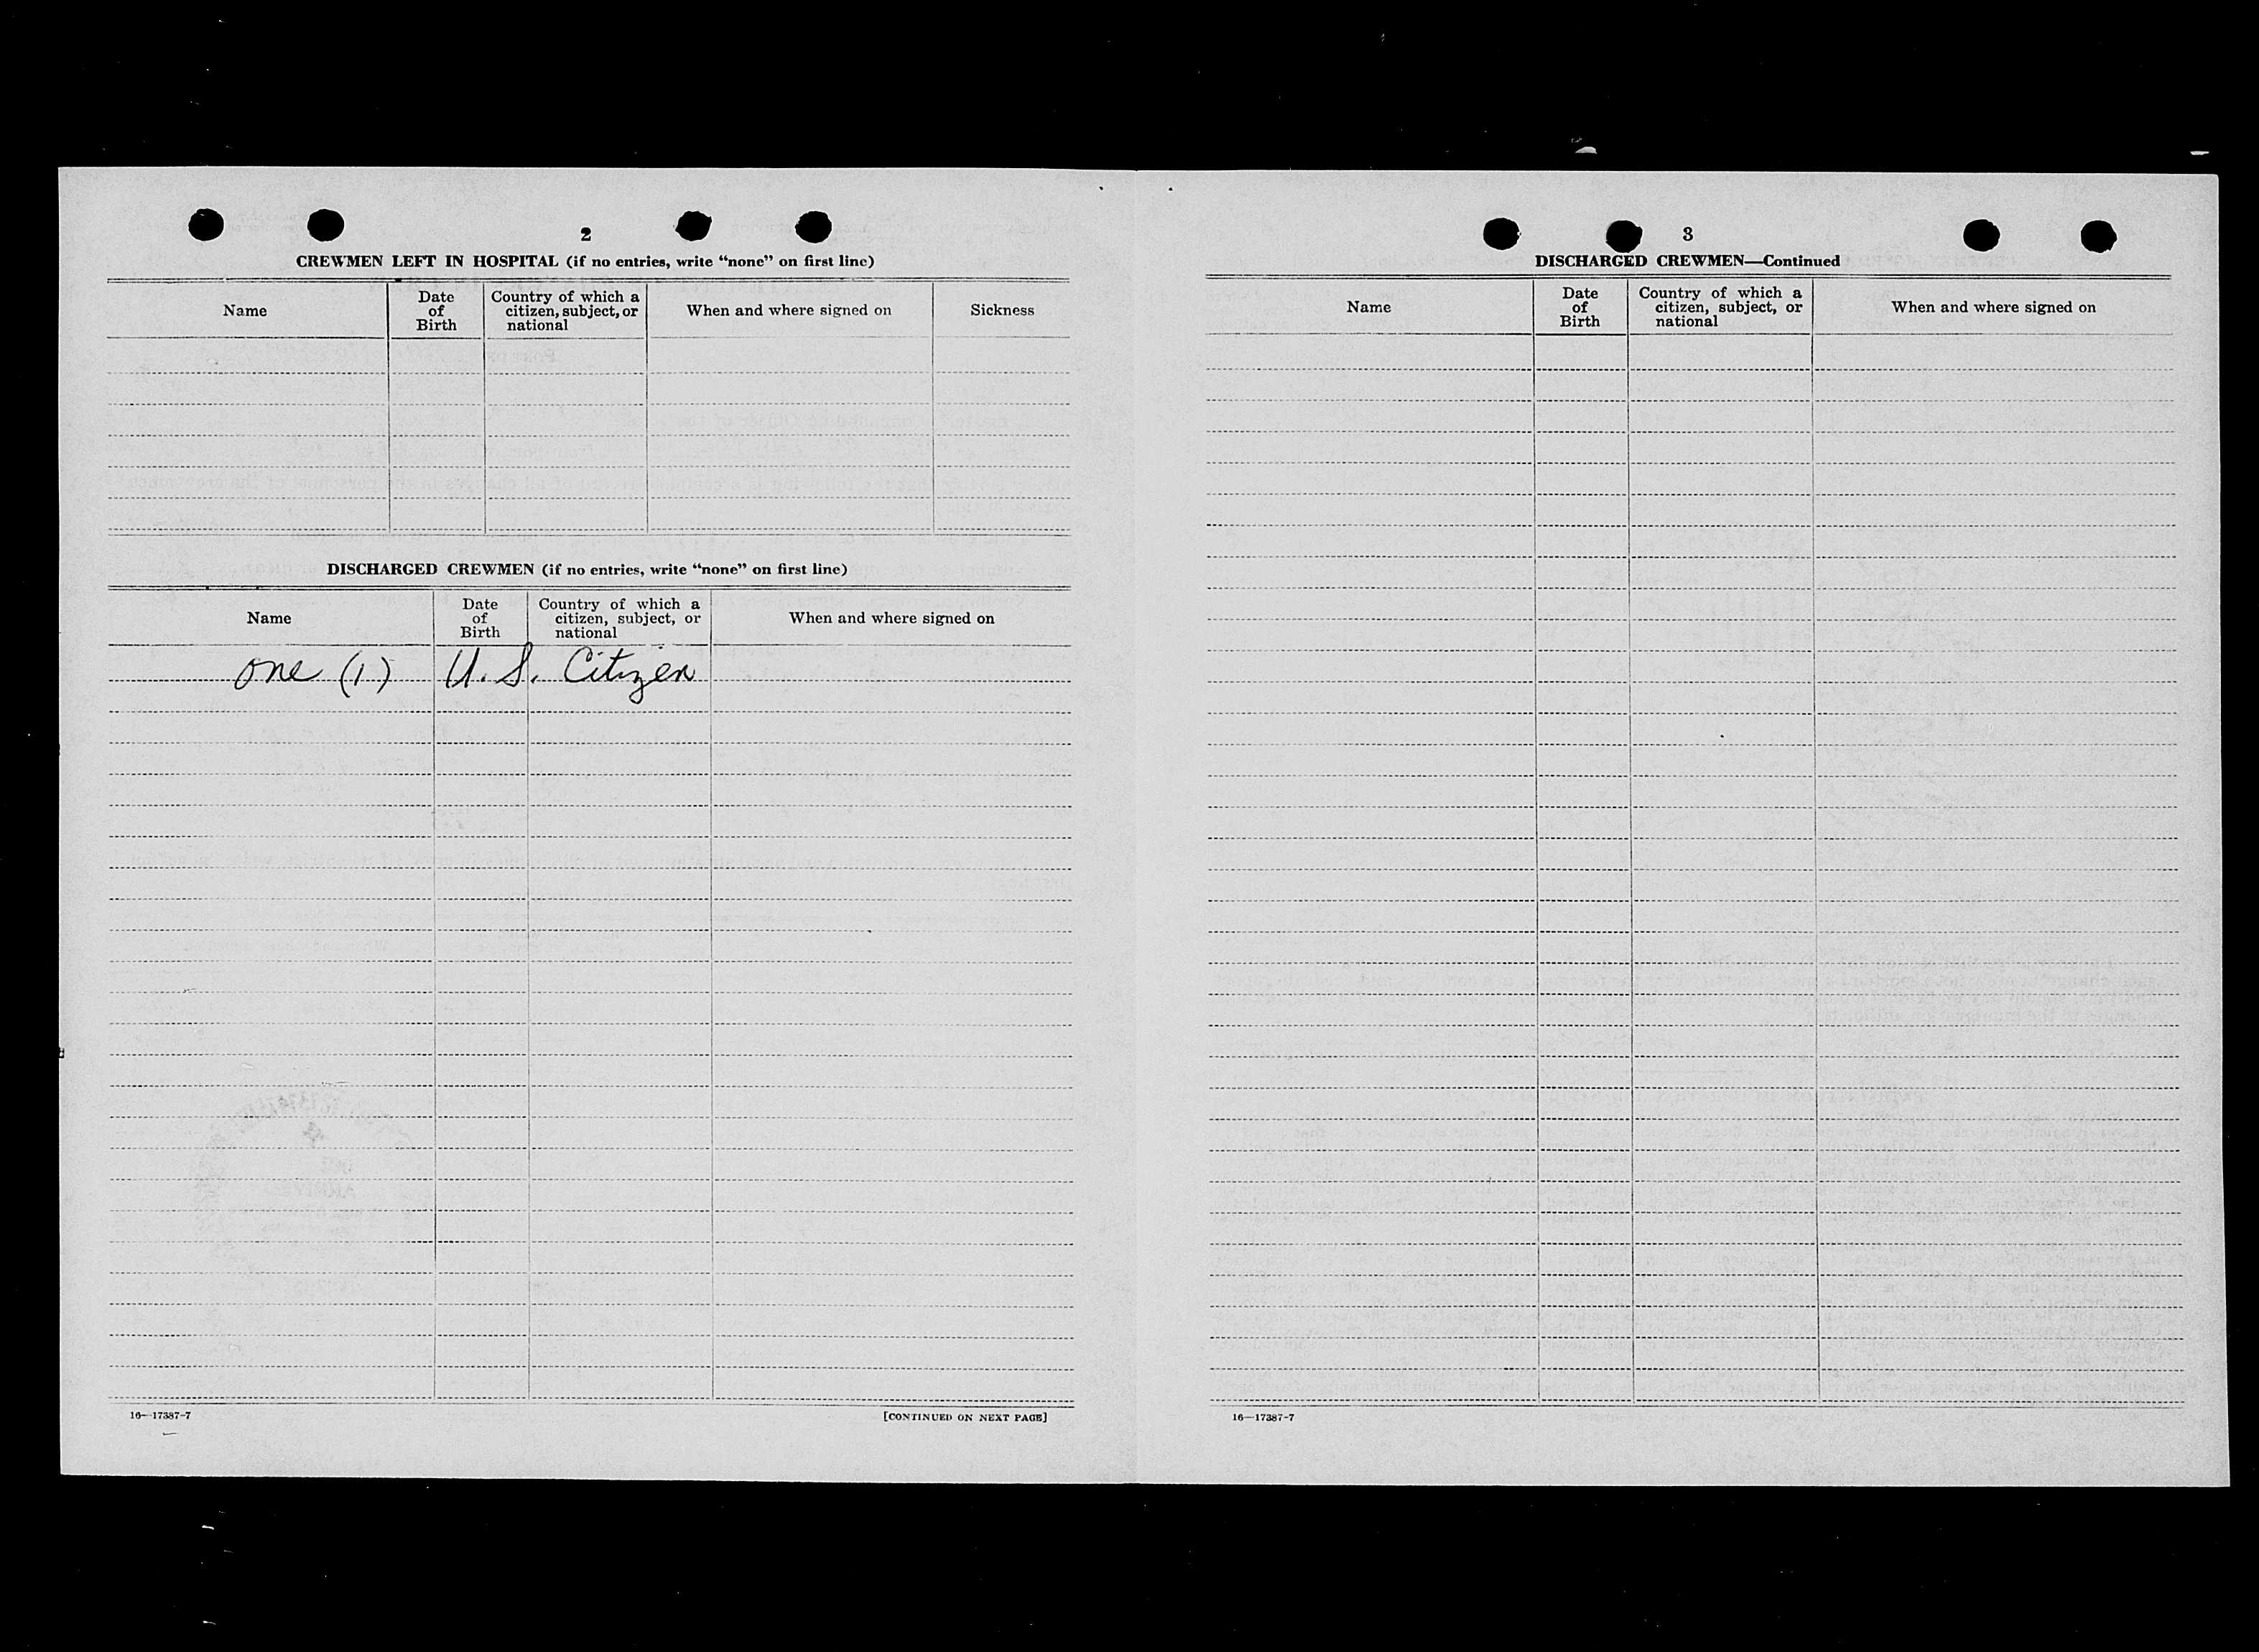 2
CREWMEN LEFT IN HOSPITAL (if no entries, write “none” on first line)
Name
Date
of
Birth
Country of which a
citizen, subject, or
national
When and where signed on
Sickness
DISCHARGED CREWMEN (if no entries, write “none” on first line)
Name
Date
of
Birth
Country of which a
citizen, subject, or
national
When and where signed on
one (1) U. S. Citizen
16—17387-7
[CONTINUED ON NEXT PAGE]
3
DISCHARGED CREWMEN—Continued
Name
Date
of
Birth
Country of which a
citizen, subject, or
national
When and where signed on
16—17387-7